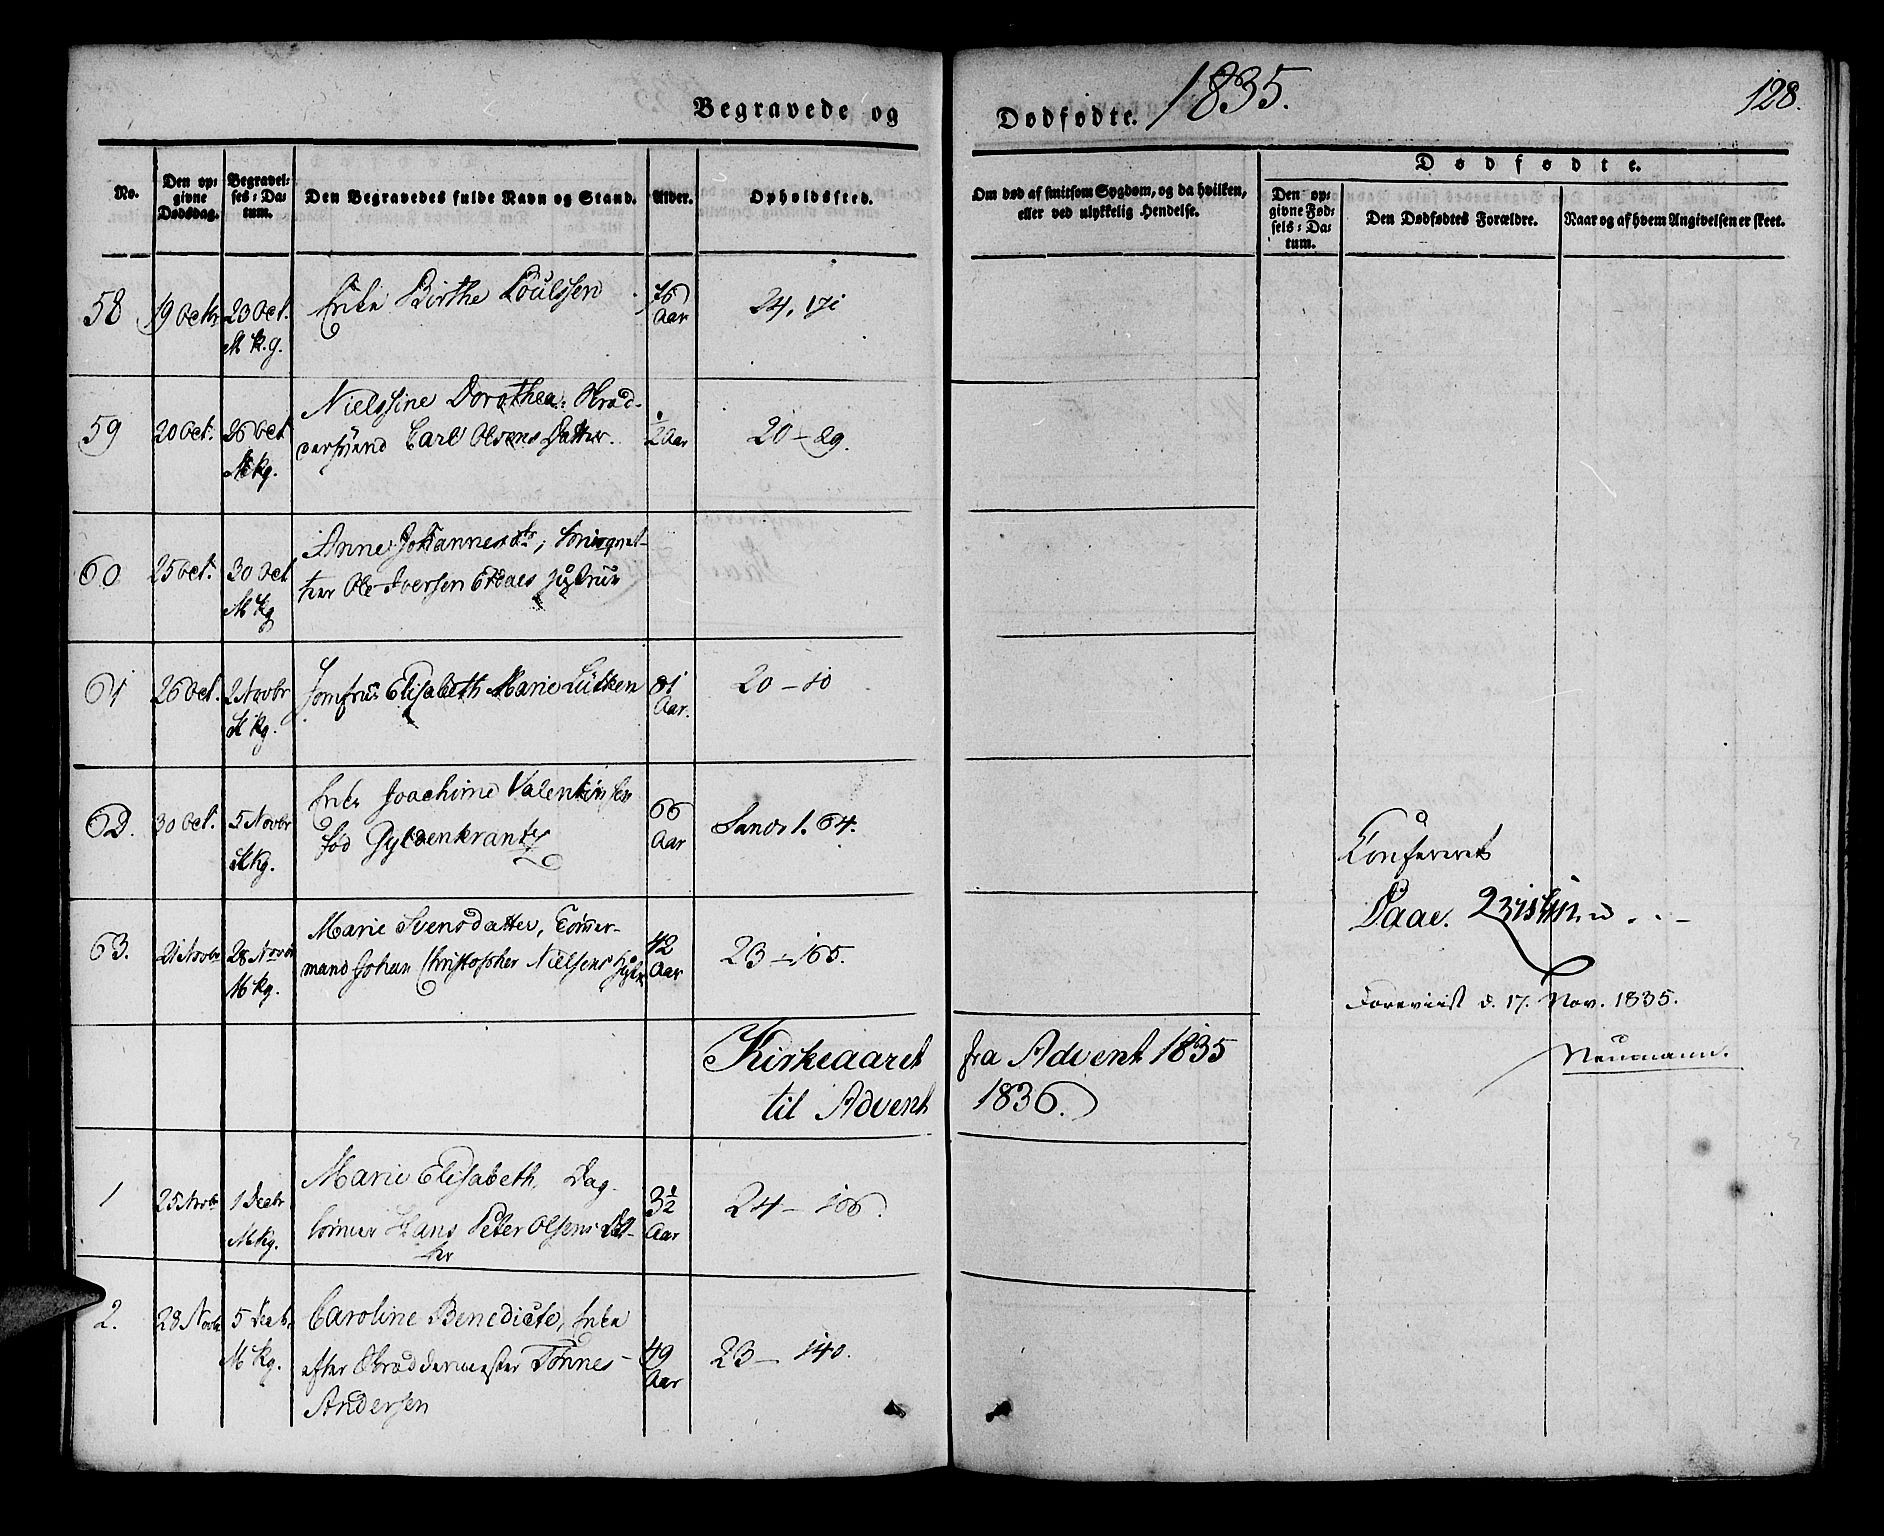 Begravede og
Dødfødte. 1835.
128.
No.
Den op-
givne
Dødsdag.
Begravel-
ses-Da-
tum.
Den Begravedes fulde Navn og Stand.
Alder.
Opholdssted.
Om død af smitsom Sygdom, og da hvilken,
eller ved ulykkelig Hendelse.
Dødfødte.
Den op-
givne Fød-
sels-Da-
tum.
Den Dødfødtes Forældre.
Naar og af hvem Angivelsen er skeet.
58 19 Octbr 23 Oct. Enke Birthe Poulssen 76 24, 171
M k.g. Aar
59 20 Oct. 26 Oct Nielssine Dorothea: Skræd- ½ Aar 20 - 89.
M kg. dersvend Carl Olsens Datter.
60 25 Oct. 30 Oct Anne Johannesdtr,
M kg Ole Iversen Hustrue
61 26 Oct. 2 Novbr Jomfrue Elisabeth Marie Lütken 81 20 - 10
kg. Aar.
62. 30 Oct. 5 Novbr Enke Joachime Valentinsen 66 Sands l. 64.
kg. fød Gyldenkrantz Aar
63. 21 Novbr 28 Novbr Marie Svensdatter, Tømmer- 42 23 - 165.
M kg. mand Johan Christopher Nielsens Aar
Kirkeaaret fra Advent 1835
til Advent 1836.
1 25 Novbr 1 Decbr Marie Elisabeth. Dag- 3½ 24 - 106.
M kg. lønner Hans Peter Olsens Dat- Aar
ter
2. 28 Novbr 5 Decbr. Caroline Benedicte, Enke 49 23 - 140.
M kg. efter Skræddermester Tønnes Aar
Andersen
Confereret
Daae.
Foreviist d. 17. Nov. 1835.
Neumann.